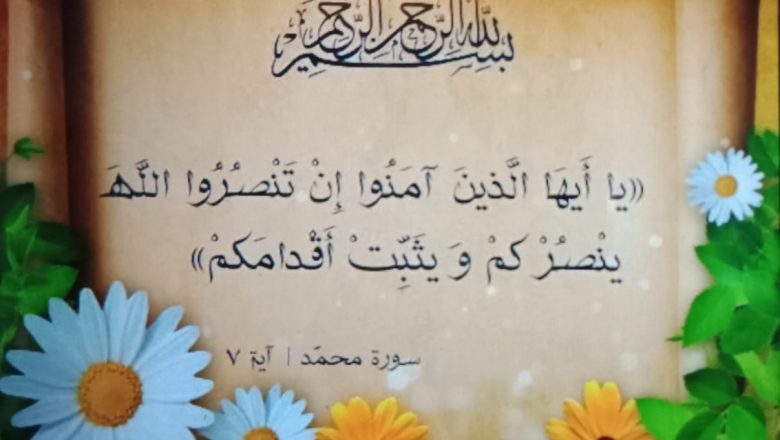 بسم الله الرحمن الرحيم
«يا أَيهَا الَّذينَ آمَنُوا إِنْ تَنْصُرُوا اللَّهَ
ينْصُرْ كمْ وَ يثَبِّتْ أَقْدامَكمْ»
سورة محمّد | آية ٧